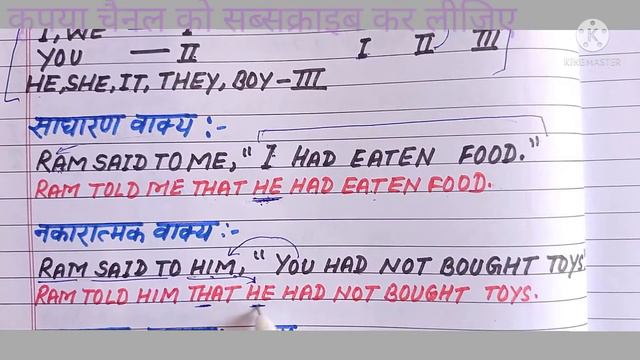 कपया चैनल को सब्सक्राइब कर लीजिए
I, WE — I
YOU — II I II III
HE, SHE, IT, THEY, BOY – III
KINEMASTER
साधारण वाक्य :-
RAM SAID TO ME, "I HAD EATEN FOOD."
RAM TOLD ME THAT HE HAD EATEN FOOD.
नकारात्मक वाक्य :-
RAM SAID TO HIM, "YOU HAD NOT BOUGHT TOYS"
RAM TOLD HIM THAT HE HAD NOT BOUGHT TOYS.